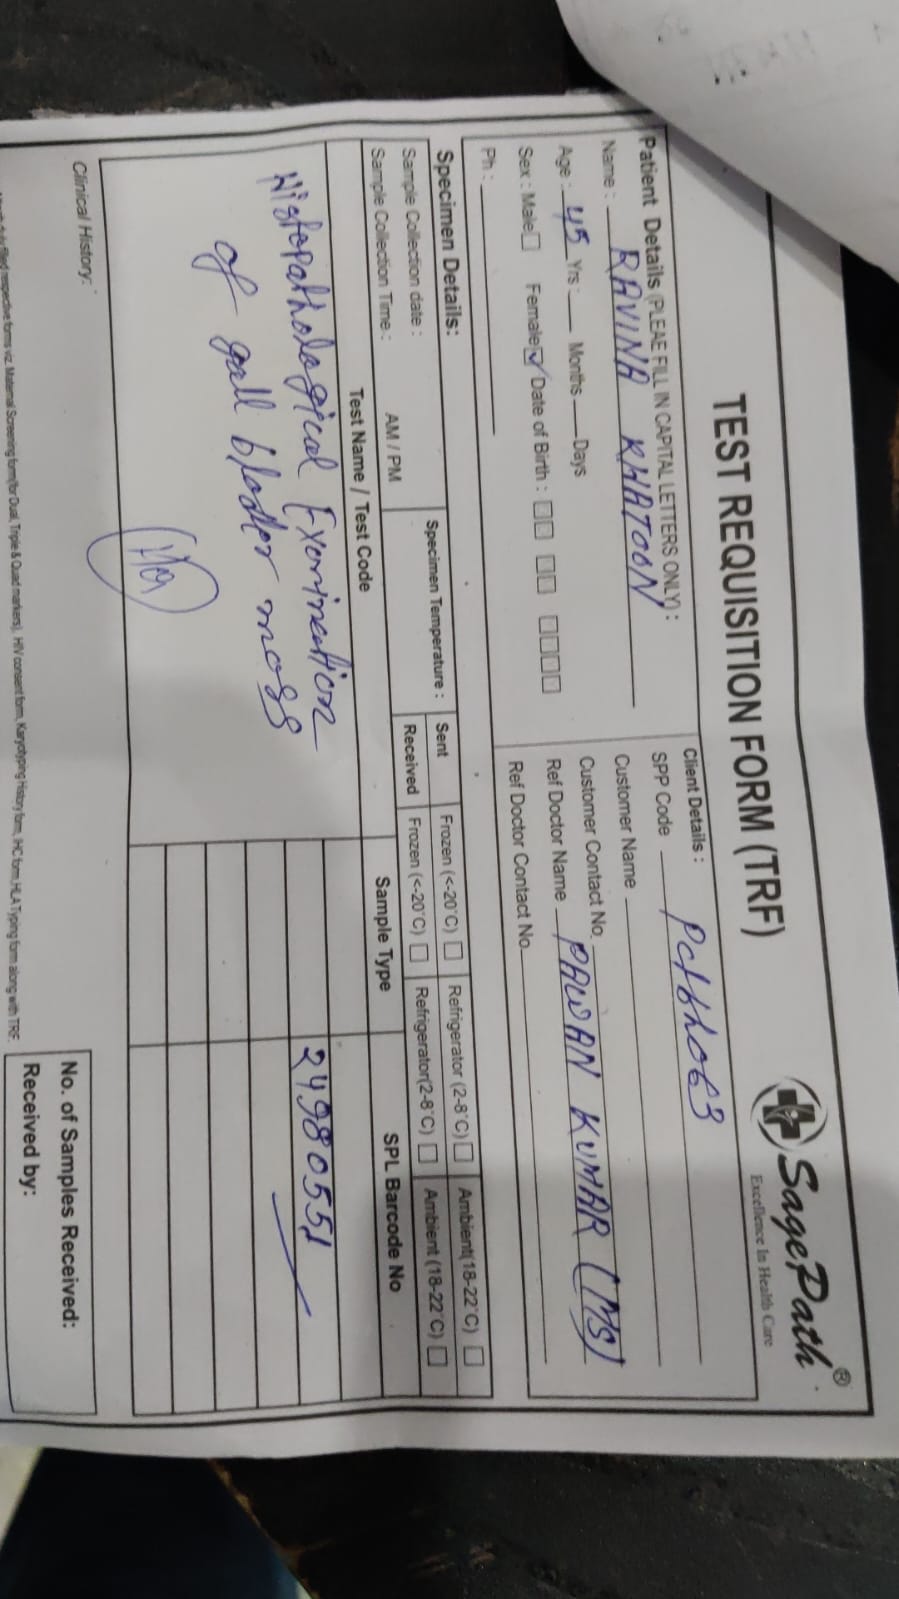 SagePath®
Excellence In Health Care
TEST REQUISITION FORM (TRF)
Patient Details (PLEAE FILL IN CAPITAL LETTERS ONLY) :
Name : RAVINA KHATOON
Age : 45 Yrs : Months Days
Sex : Male Female Date of Birth :
Ph :
Client Details :
SPP Code
Customer Name
Customer Contact No.
Ref Doctor Name PAWAN KUMAR (MS)
Ref Doctor Contact No.
Specimen Details:
Sample Collection date :
Sample Collection Time : AM / PM
Specimen Temperature :
Sent Frozen (<-20°C) Refrigerator (2-8°C) Ambient(18-22°C)
Received Frozen (<-20°C) Refrigerator(2-8°C) Ambient (18-22°C)
Test Name / Test Code Sample Type SPL Barcode No
Histopathological Examination
of gall blader mass
24980551
Clinical History:
No. of Samples Received:
Received by:
filled respective forms viz. Maternal Screening form(for Dual, Triple & Quad markers), HIV consent form, Karyotyping History form, IHC form,HLA Typing form along with TRF.